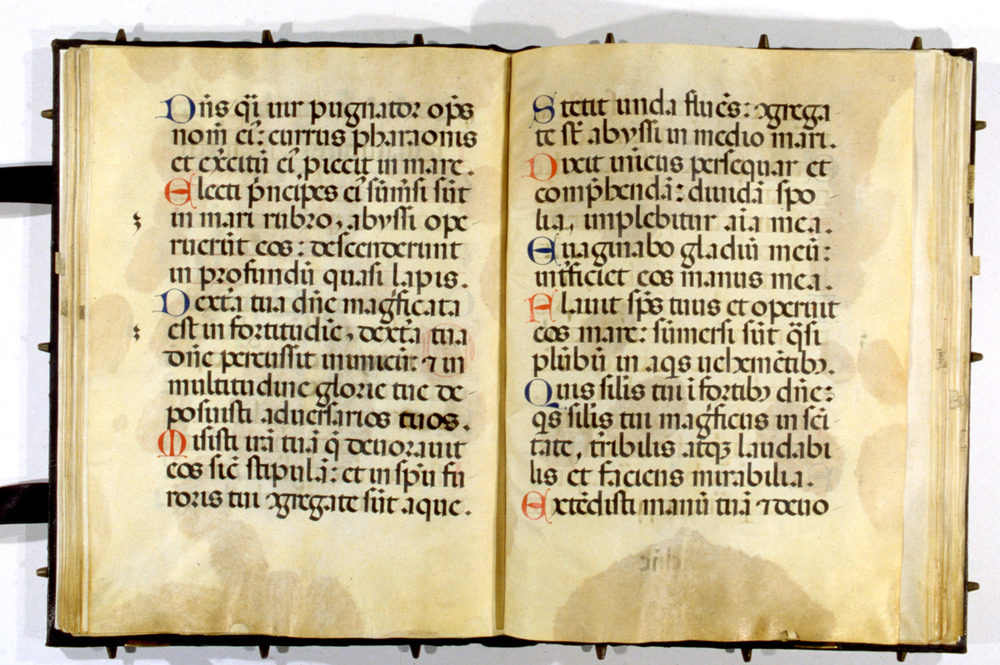 Dñs q̃i uir pugnator op̃s
nom̃ ei: currus pharaonis
et exc̃itũ ei piecit in mare.
Electi p̃ncipes ei sũm̃si sũt
in mari rubro, abyssi ope
ruerũt eos: descenderunt
in profundũ quasi lapis.
Dext̃a tua dñe mag̃ficata
est in fortitudĩe, dext̃a tua
dñe percussit inimicũ: ⁊ in
multitudine glorie tue de
posuisti aduersarios tuos.
Misisti irã tuã q̃ deuorauit
eos sic̃ stipulã: et in sp̃u fu
roris tui ꝯgregate sũt aque.
Stetit unda flue̅s: ꝯgrega
te st̃ abyssi in medio mari.
Dixit inĩcus persequar et
comp̃hendã: diuidã spo
lia, implebitur aĩa mea.
Euaginabo gladiũ meũ:
int̃ficiet eos manus mea.
Flauit sp̃s tuus et operuit
eos mare: sũmersi sũt q̃si
plũbũ in aqs uehemẽtibꝫ.
Quis silis tui ĩ fortibꝫ dñe:
qs̃ silis tui mag̃ficus in sci
tate, t̃ribilis atqꝫ laudabi
lis et faciens mirabilia.
Extẽdisti manũ tuã ⁊ deuo